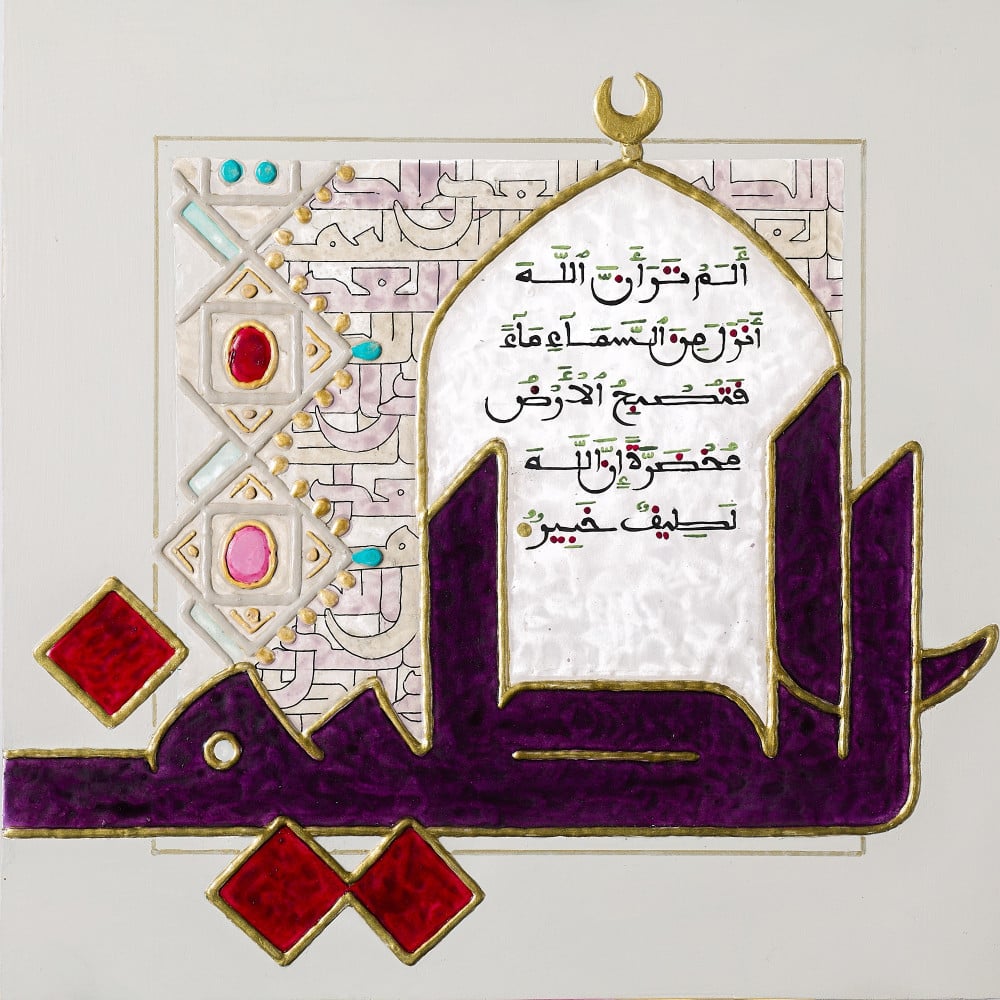 أَلَمْ تَرَ أَنَّ ٱللَّهَ
أَنزَلَ مِنَ ٱلسَّمَآءِ مَآءً
فَتُصْبِحُ ٱلْأَرْضُ
مُخْضَرَّةً إِنَّ ٱللَّهَ
لَطِيفٌ خَبِيرٌ
اللطيف